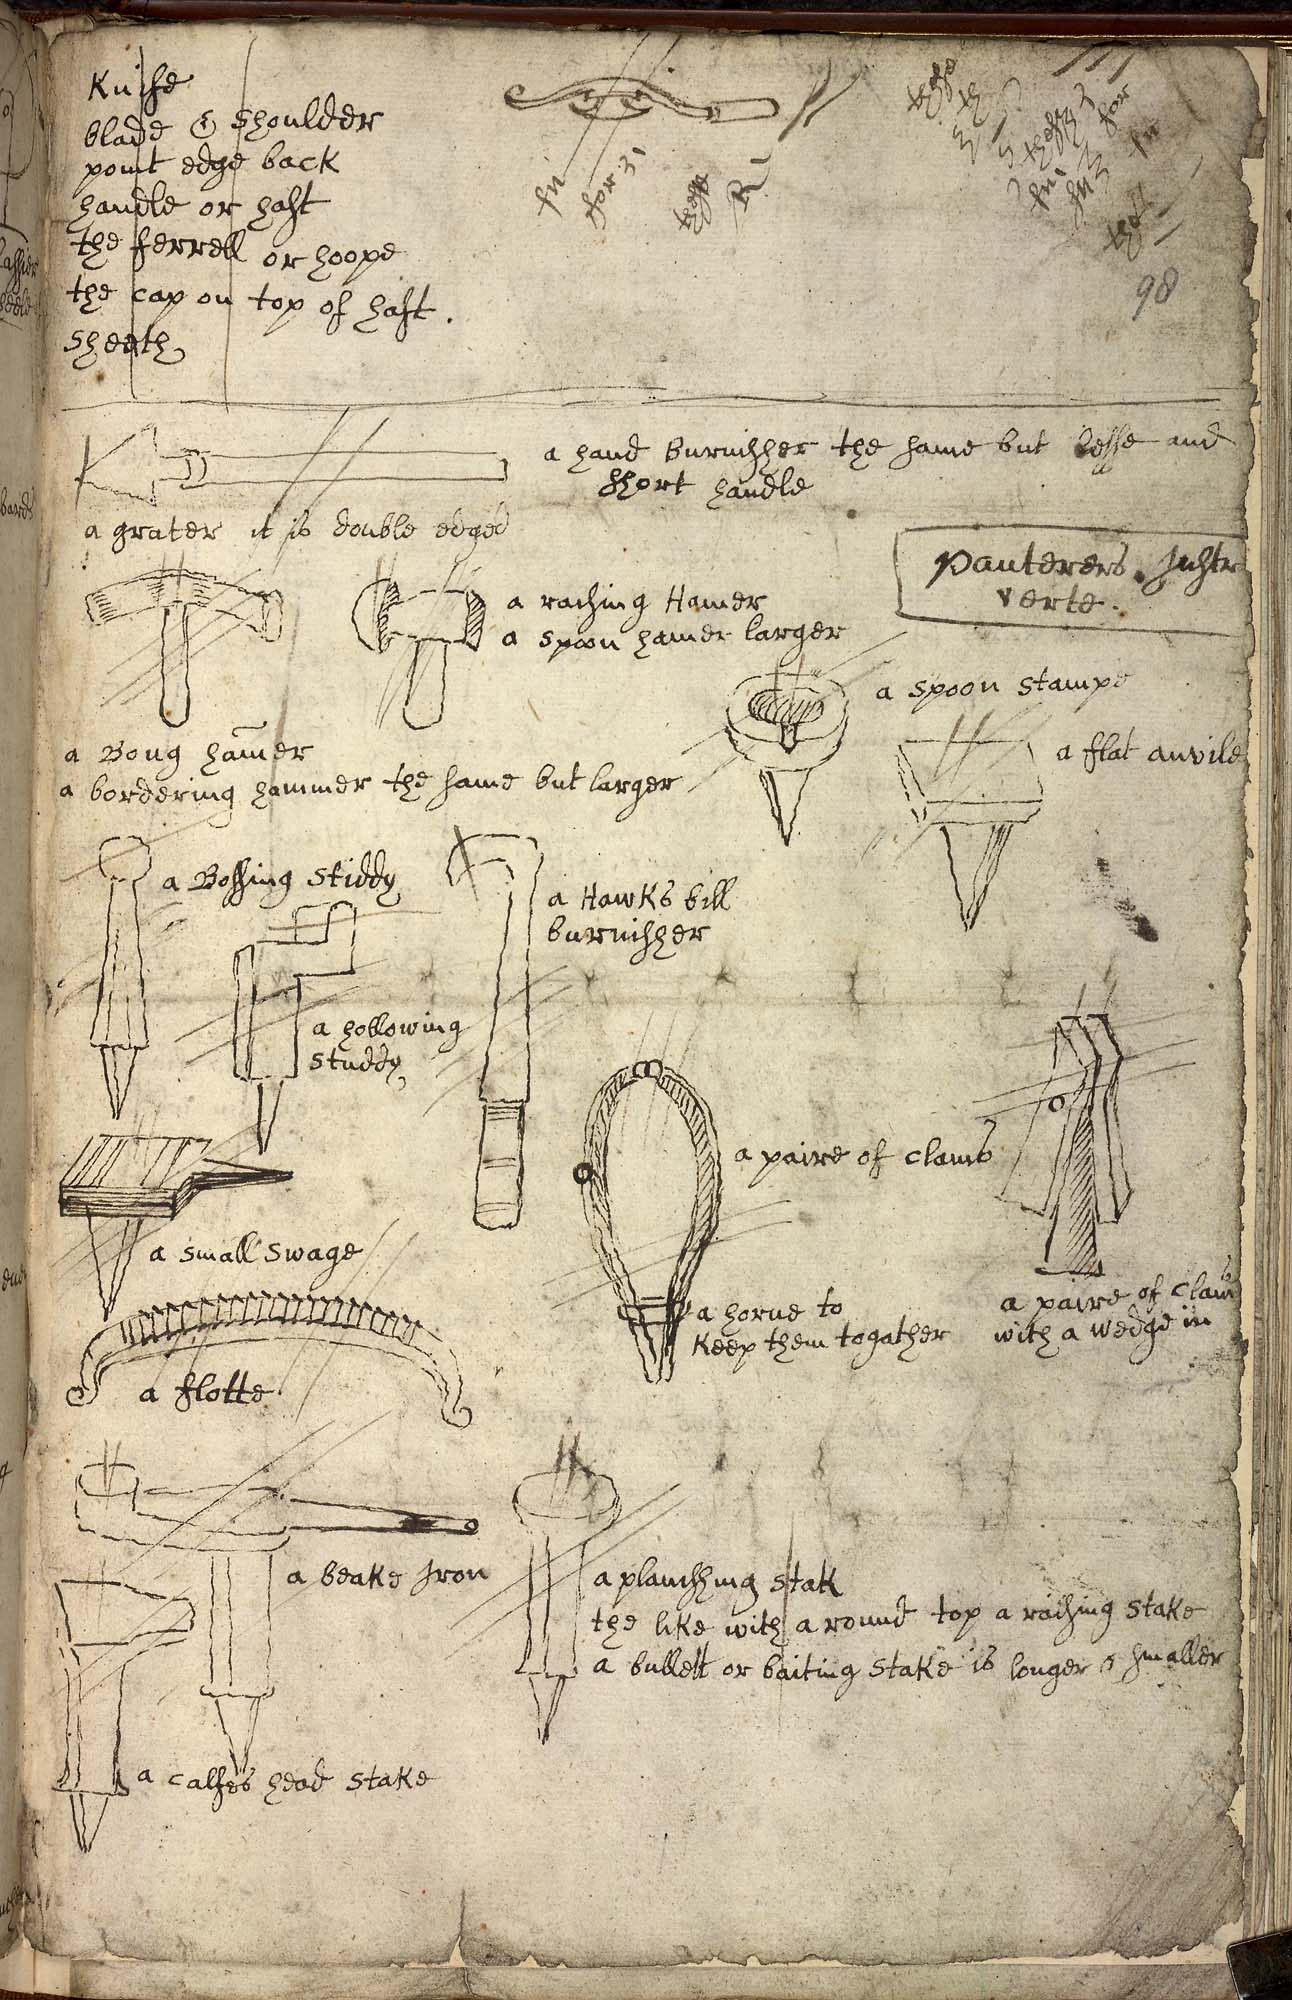 Knife
blade & shoulder
point edge back
handle or haft
the ferrell or hoope
the cap on top of haft.
sheath
98
a hand burnishher the same but lesse and
short handle
a grater it is double edged
Panterers Instr
verte.
a rasing Hamer
a spoon hamer larger
a spoon stampe
a flat anvile
a Boug ham̄er
a bordering hammer the same but larger
a Bossing stiddy
a Hawks bill
burnishher
a hollowing
studdy
a paire of clams
a small swage
a horne to
keep them togather
a paire of clam
with a wedge in
a flotte
a beake Iron
a planishing stak
the like with a round top a raising stake
a bullett or baiting stake is longer & smaller
a calfes head stake